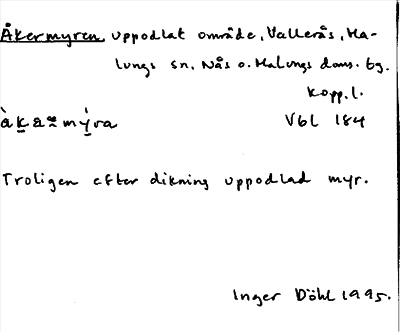 Åkermyren, uppodlat område, Vallerås, Ma-
lungs sn, Nås o. Malungs doms. bg.
Kopp. l.
Vbl 184
Troligen efter dikning uppodlad myr.
Inger Döhl 1995.